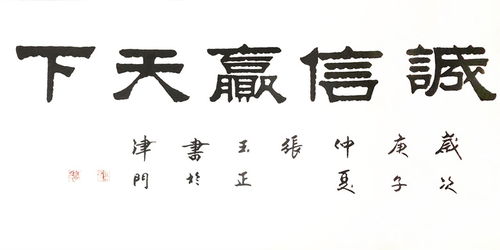 誠信贏天下
歲次
庚子
仲夏
張
玉正
書於
津門